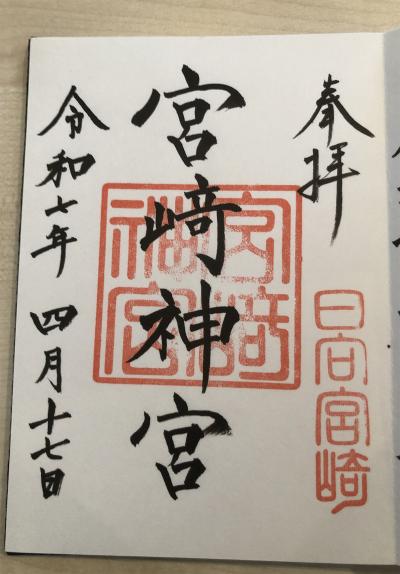 奉拝
日向宮崎
宮﨑神宮
宮﨑神宮
令和七年 四月十七日